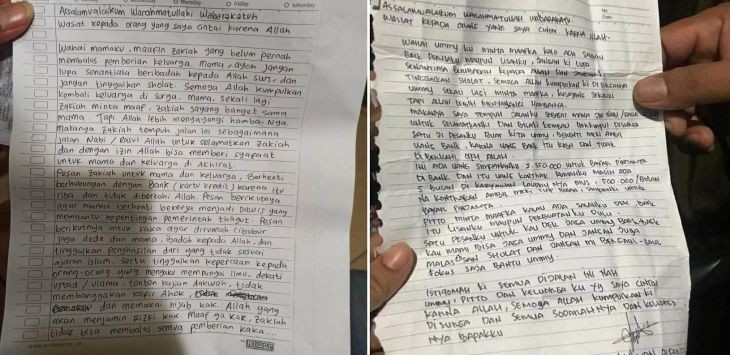 thursday
friday
saturday
Assalamualaikum Warahmatullahi Wabarakatuh
Wasiat kepada orang yang saya cintai karena Allah
Wahai mamaku, maafin Zakiah yang belum pernah
membalas pemberian keluarga. mama, ayah jangan
lupa senantiasa beribadah kepada Allah SWT, dan
jangan tinggalkan sholat. Semoga Allah kumpulkan
kembali keluarga di surga. mama, sekali lagi
Zakiah minta maaf. Zakiah sayang banget sama
mama. Tapi Allah lebih menyayangi hamba-Nya.
makanya Zakiah tempuh jalan ini sebagaimana
jalan Nabi / Rasul Allah untuk selamatkan Zakiah
dan dengan izin Allah bisa memberi syafaat
untuk mama dan keluarga di Akhirat.
Pesan Zakiah untuk mama dan keluarga, Berhenti
berhubungan dengan Bank (kartu kredit) karena itu
riba dan tidak diborkahi Allah. Pesan berikutnya
agar mamah berhenti bekerja menjadi Dawis yang
membantu kepentingan pemerintah thogut. Pesan
berikutnya untuk kaka agar dirumah cibubur
jaga dede dan mama, ibadah kepada Allah, dan
tinggalkan penghasilan dari yang tidak sesuai
ajaran islam. serta tinggalkan kepercaan kepada
orang-orang yang mengaku mempunyai ilmu, dekati
ustad / ulama. tonton kajian dakwah, tidak
membanggakan kafir Ahok,
dan memakai hijab kak. Allah yang
akan menjamin Rizki kak. maaf ya kak, Zakiah
tidak bisa membalas semua pemberian kaka...
No
Date
ASSALAMUALAIKUM WARAHMATULLAH WABARAKATU.
WASIAT KEPADA ORANG YANG SAYA CINTAI KARNA ALLAH.
WAHAI UMMY KU MINTA MAAFKA KALO ADA SALAHKU
BAIK PERILAKU MAUPUN LISANKU, JANGAN KI LUPA
SENANTIASA BERIBADAH KEPADA ALLAH DAN JANGAN KI
TINGGALKAN SHOLAT, SEMOGA ALLAH KUMPULKAN KI DI SURGANYA
UMMY SEKALI LAGI MINTA MAAFKA, KUSAYANG SEKALIKI
TAPI ALLAH LEBIH MENYAYANGI HAMBANYA.
MAKANYA SAYA TEMPUH JALANKU SEBAGAI MANA JALAN
UNTUK SELAMATKANKI DAN BISAKI TEMPAT BERKUMPUL DI SURGA
SATU JI PESANKU BUAT KITA UMMY, BERHENTI MAKI AMBIL
UANG BANK, KARNA UANG BANK ITU RIBA DAN TIDAK
DI BERKAHI OLEH ALLAH.
INI ADA UANG SIMPANANKU 2.350.000 UNTUK BAYAR
DI BANK DAN ITU UANG KONTRAK RUMAHKU MASIH ADA
5 BULAN DI KARYAWAN 500.000/BULAN
PITTO MINTA MAAFKA KALAU ADA SALAHKU DEK, BAIK
ITU LISANKU MAUPUN PERBUATAN KU DULU.
SATU PESANKU UNTUK KAU DEK JAGA UMMY BAIK-BAIK
KAU MAMI BISA JAGA UMMY DAN JANGAN JUGA
MALAS SHOLAT DAN JANGAN MI BERGAUL-GAUL
FOKUS SAJA BANTU UMMY.
ISTIQOMAH KI SEMUA DIJALAN INI NAH
UMMY, PITTO DAN KELUARGA KU YG SAYA CINTAI
KARNA ALLAH, SEMOGA ALLAH KUMPULKAN KI
DI SURGA DAN SEMUA SODARAH NYA DAN KELUARGA
NYA BAPAKKU